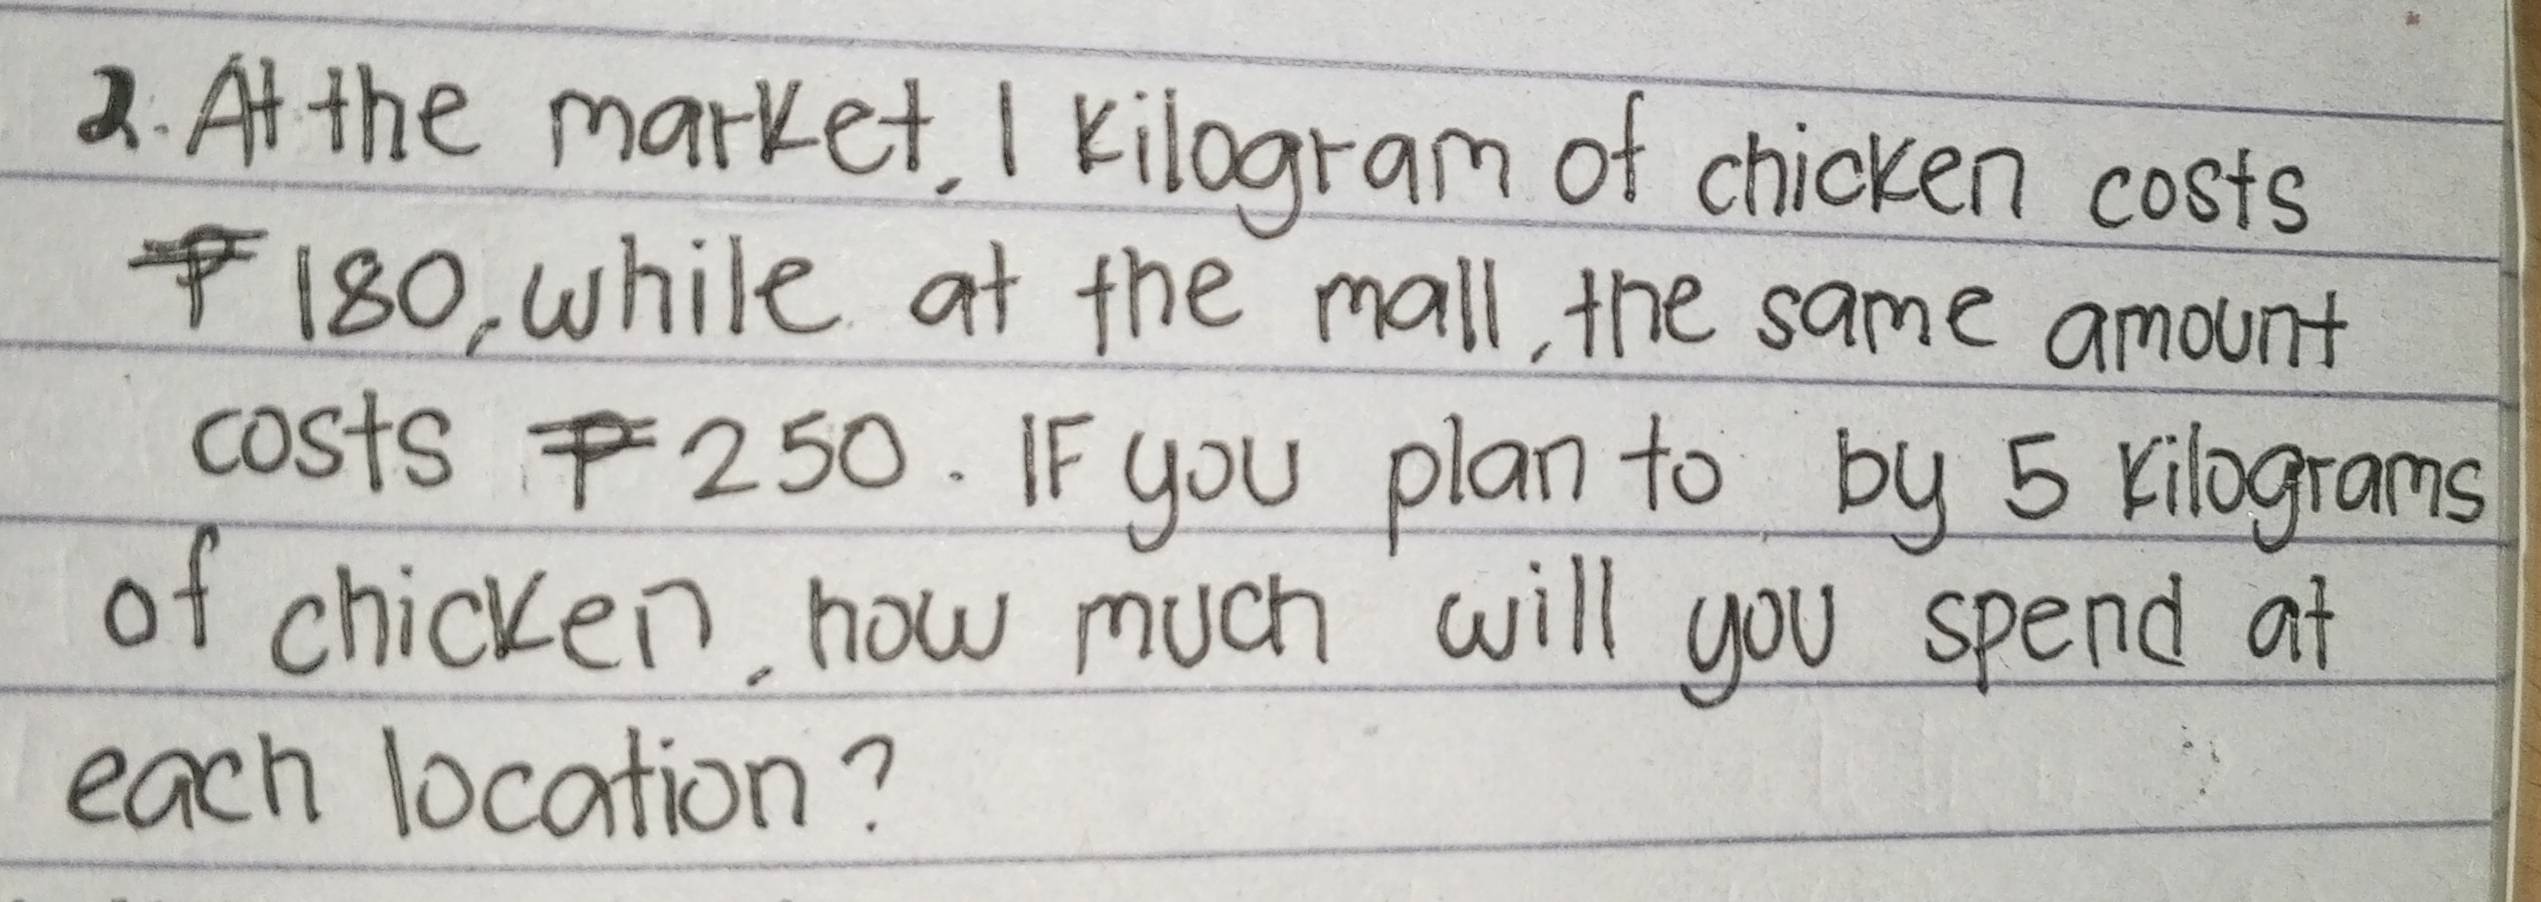 2. At the market, 1 kilogram of chicken costs
₱180, while at the mall, the same amount
costs ₱250. IF you plan to by 5 kilograms
of chicken, how much will you spend at
each location?